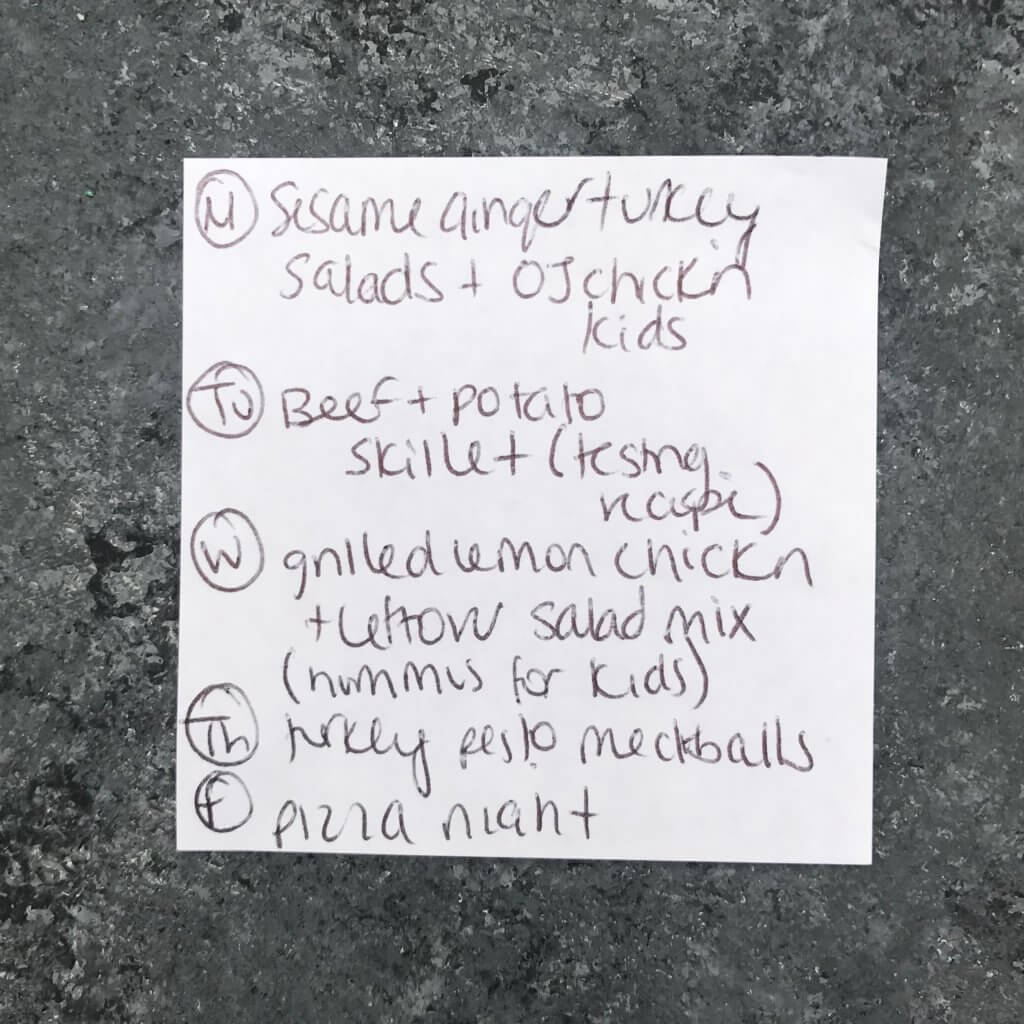 M Sesame ginger turkey
salads + OJ chickn
kids
Tu Beef + potato
skillet (testing
recipe)
W grilled lemon chickn
+ leftovr salad mix
(hummus for kids)
Th turkey pesto meatballs
F pizza night